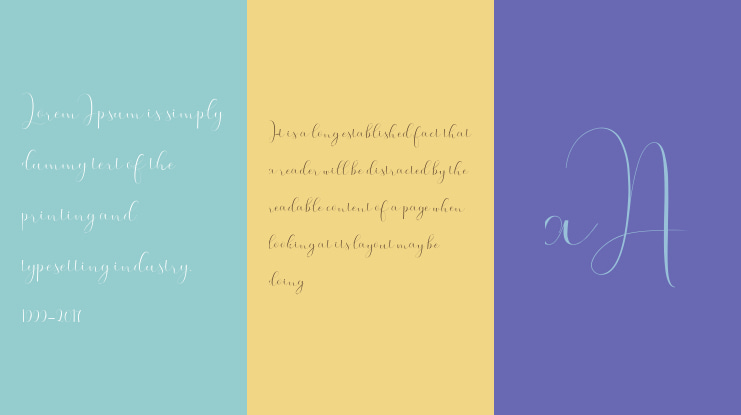 Lorem Ipsum is simply
dummy text of the
printing and
typesetting industry.
It is a long established fact that
a reader will be distracted by the
readable content of a page when
looking at its layout may be
doing
aA